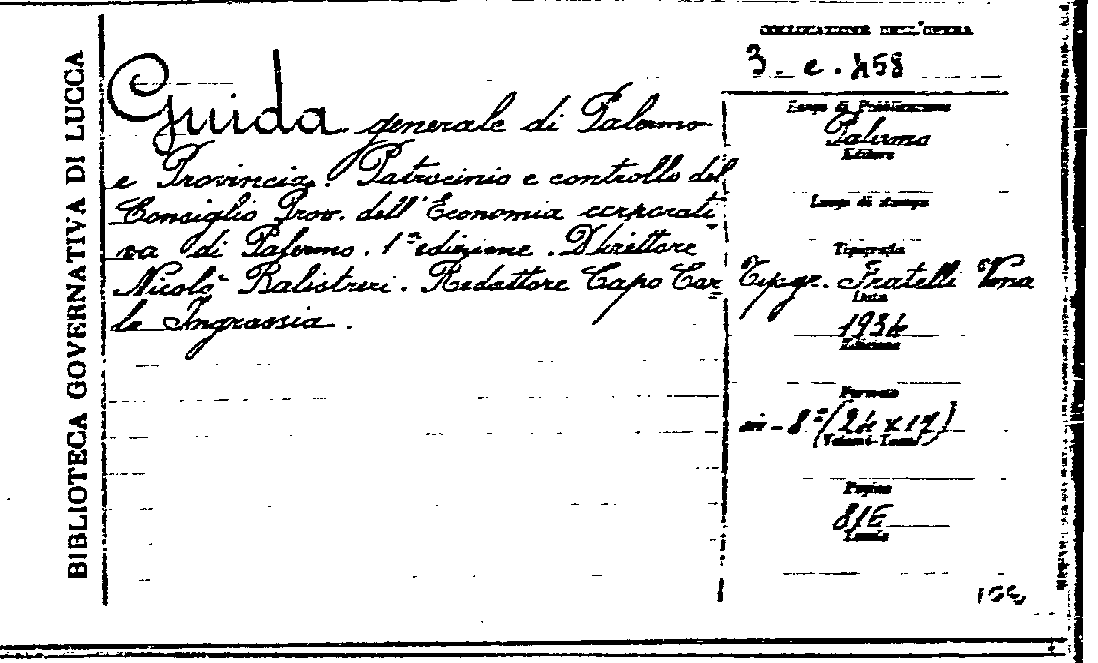 BIBLIOTECA GOVERNATIVA DI LUCCA
Guida generale di Palermo
e Provincia. Patrocinio e controllo del
Consiglio Prov. dell'Economia corporati
va di Palermo. 1ª edizione. Direttore
Nicolò Balistreri. Redattore Capo Car=
lo Ingrassia.
COLLOCAZIONE DELL'OPERA
3. e. 458
Luogo di Pubblicazione
Palermo
Editore
Luogo di stampa
Tipografia
Tipogr. Fratelli Vena
Data
1934
Edizione
Formato
in-8º (24 x 17)
Volumi-Tomi
Pagine
Tavole